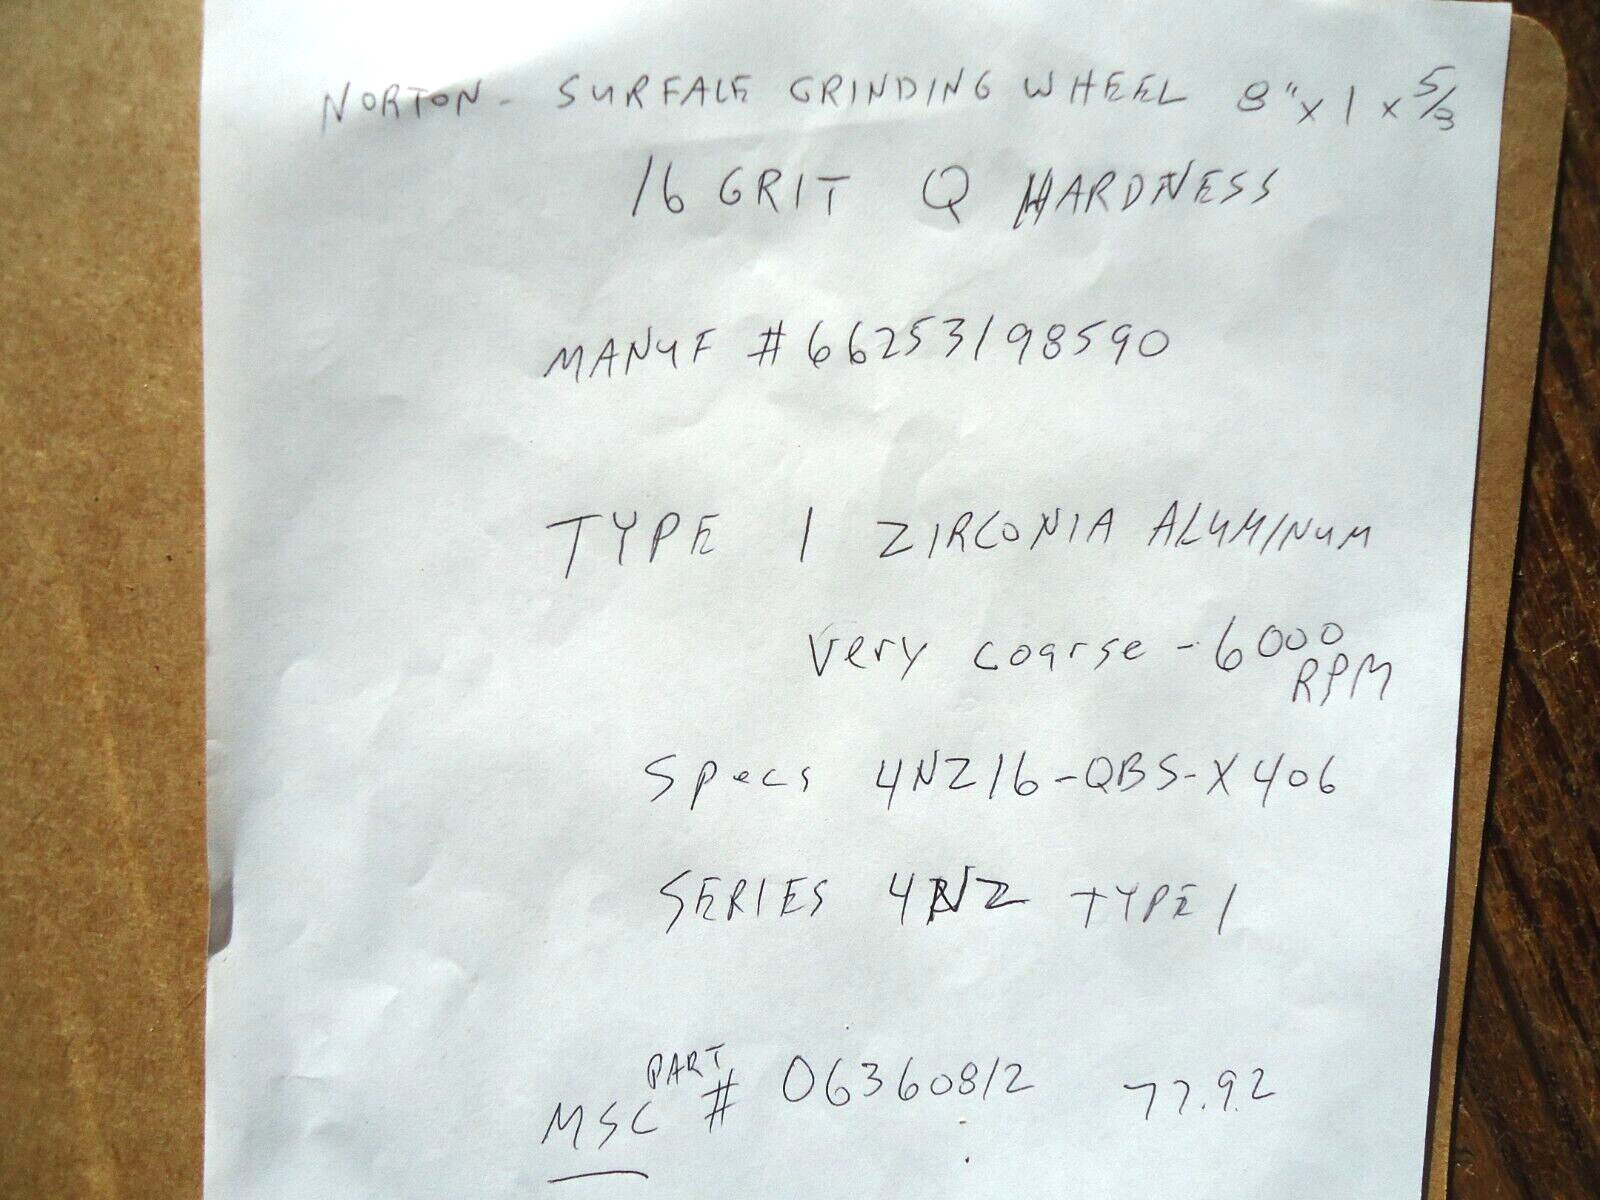 NORTON - SURFACE GRINDING WHEEL 8" x 1 x 5/8
16 GRIT Q HARDNESS
MANUF # 66253198590
TYPE 1 ZIRCONIA ALUMINUM
very coarse - 6000
RPM
Specs 4NZ16-QBS-X406
SERIES 4NZ TYPE 1
MSC PART # 06360812 77.92